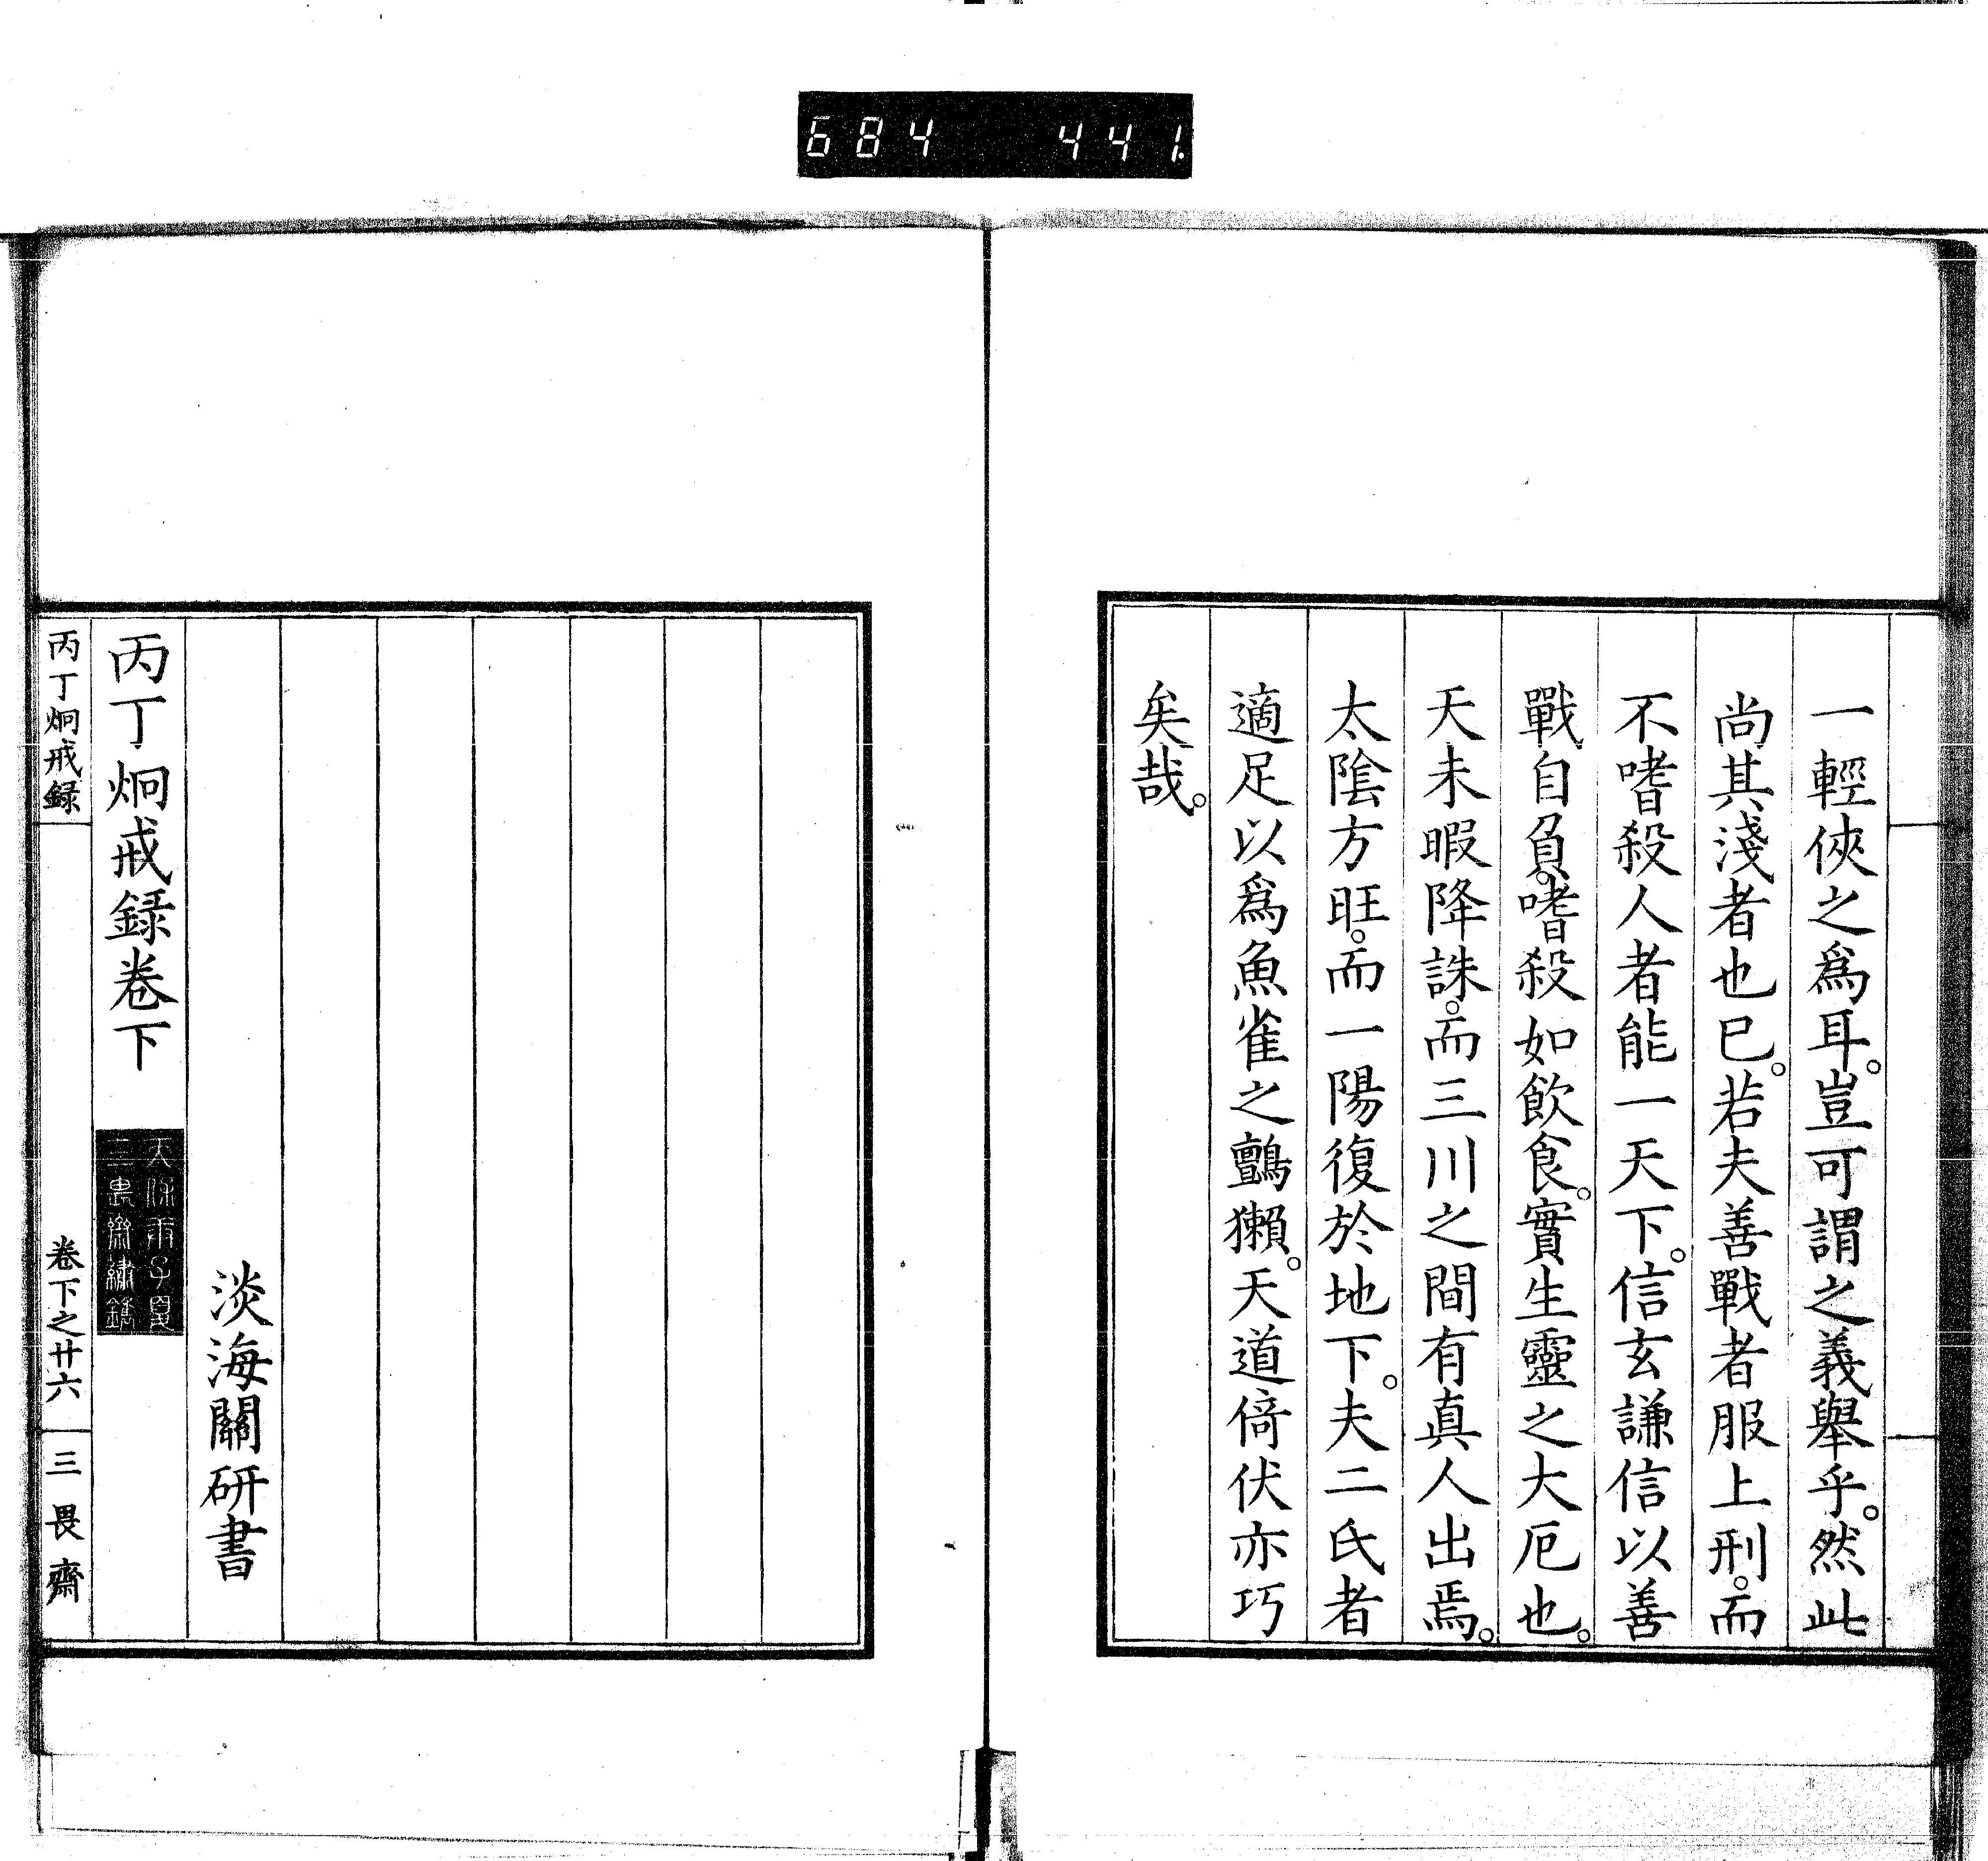 684 441.
一輕俠之爲耳。豈可謂之義舉乎。然此
尚其淺者也已。若夫善戰者服上刑。而
不嗜殺人者能一天下。信玄謙信以善
戰自負。嗜殺如飲食。實生靈之大厄也。
天未暇降誅。而三川之間有真人出焉。
太陰方旺。而一陽復於地下。夫二氏者
適足以爲魚雀之鸇獺。天道倚伏亦巧
矣哉。
淡海關研書
丙丁炯戒録卷下
天保庚子夏
三畏齋繡鐫
丙丁炯戒録
卷下之廿六
三畏齋